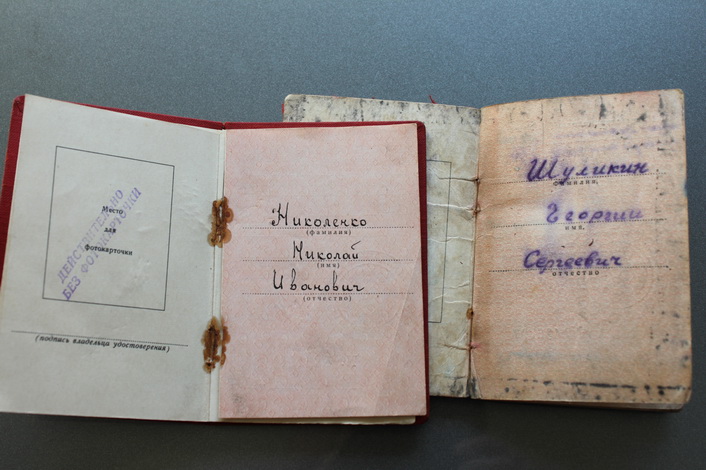 Место
для
фотокарточки
ДЕЙСТВИТЕЛЬНО
БЕЗ ФОТОКАРТОЧКИ
(подпись владельца удостоверения)
Николенко
(фамилия)
Николай
(имя)
Иванович
(отчество)
Шуликин
фамилия,
Георгий
имя,
Сергеевич
отчество